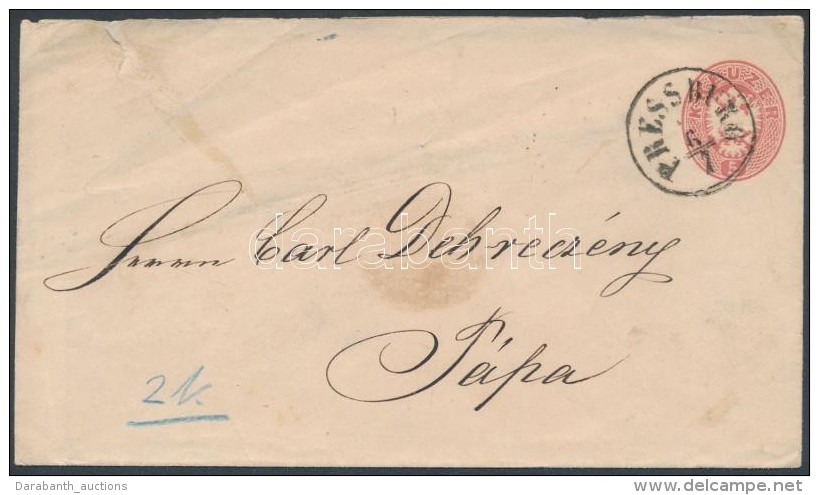 KREUZER
PRESSBURG
5/7
Herrn Carl Debreczény
Pápa
2k.
darabanth
Darabanth_auctions
www.delcampe.net